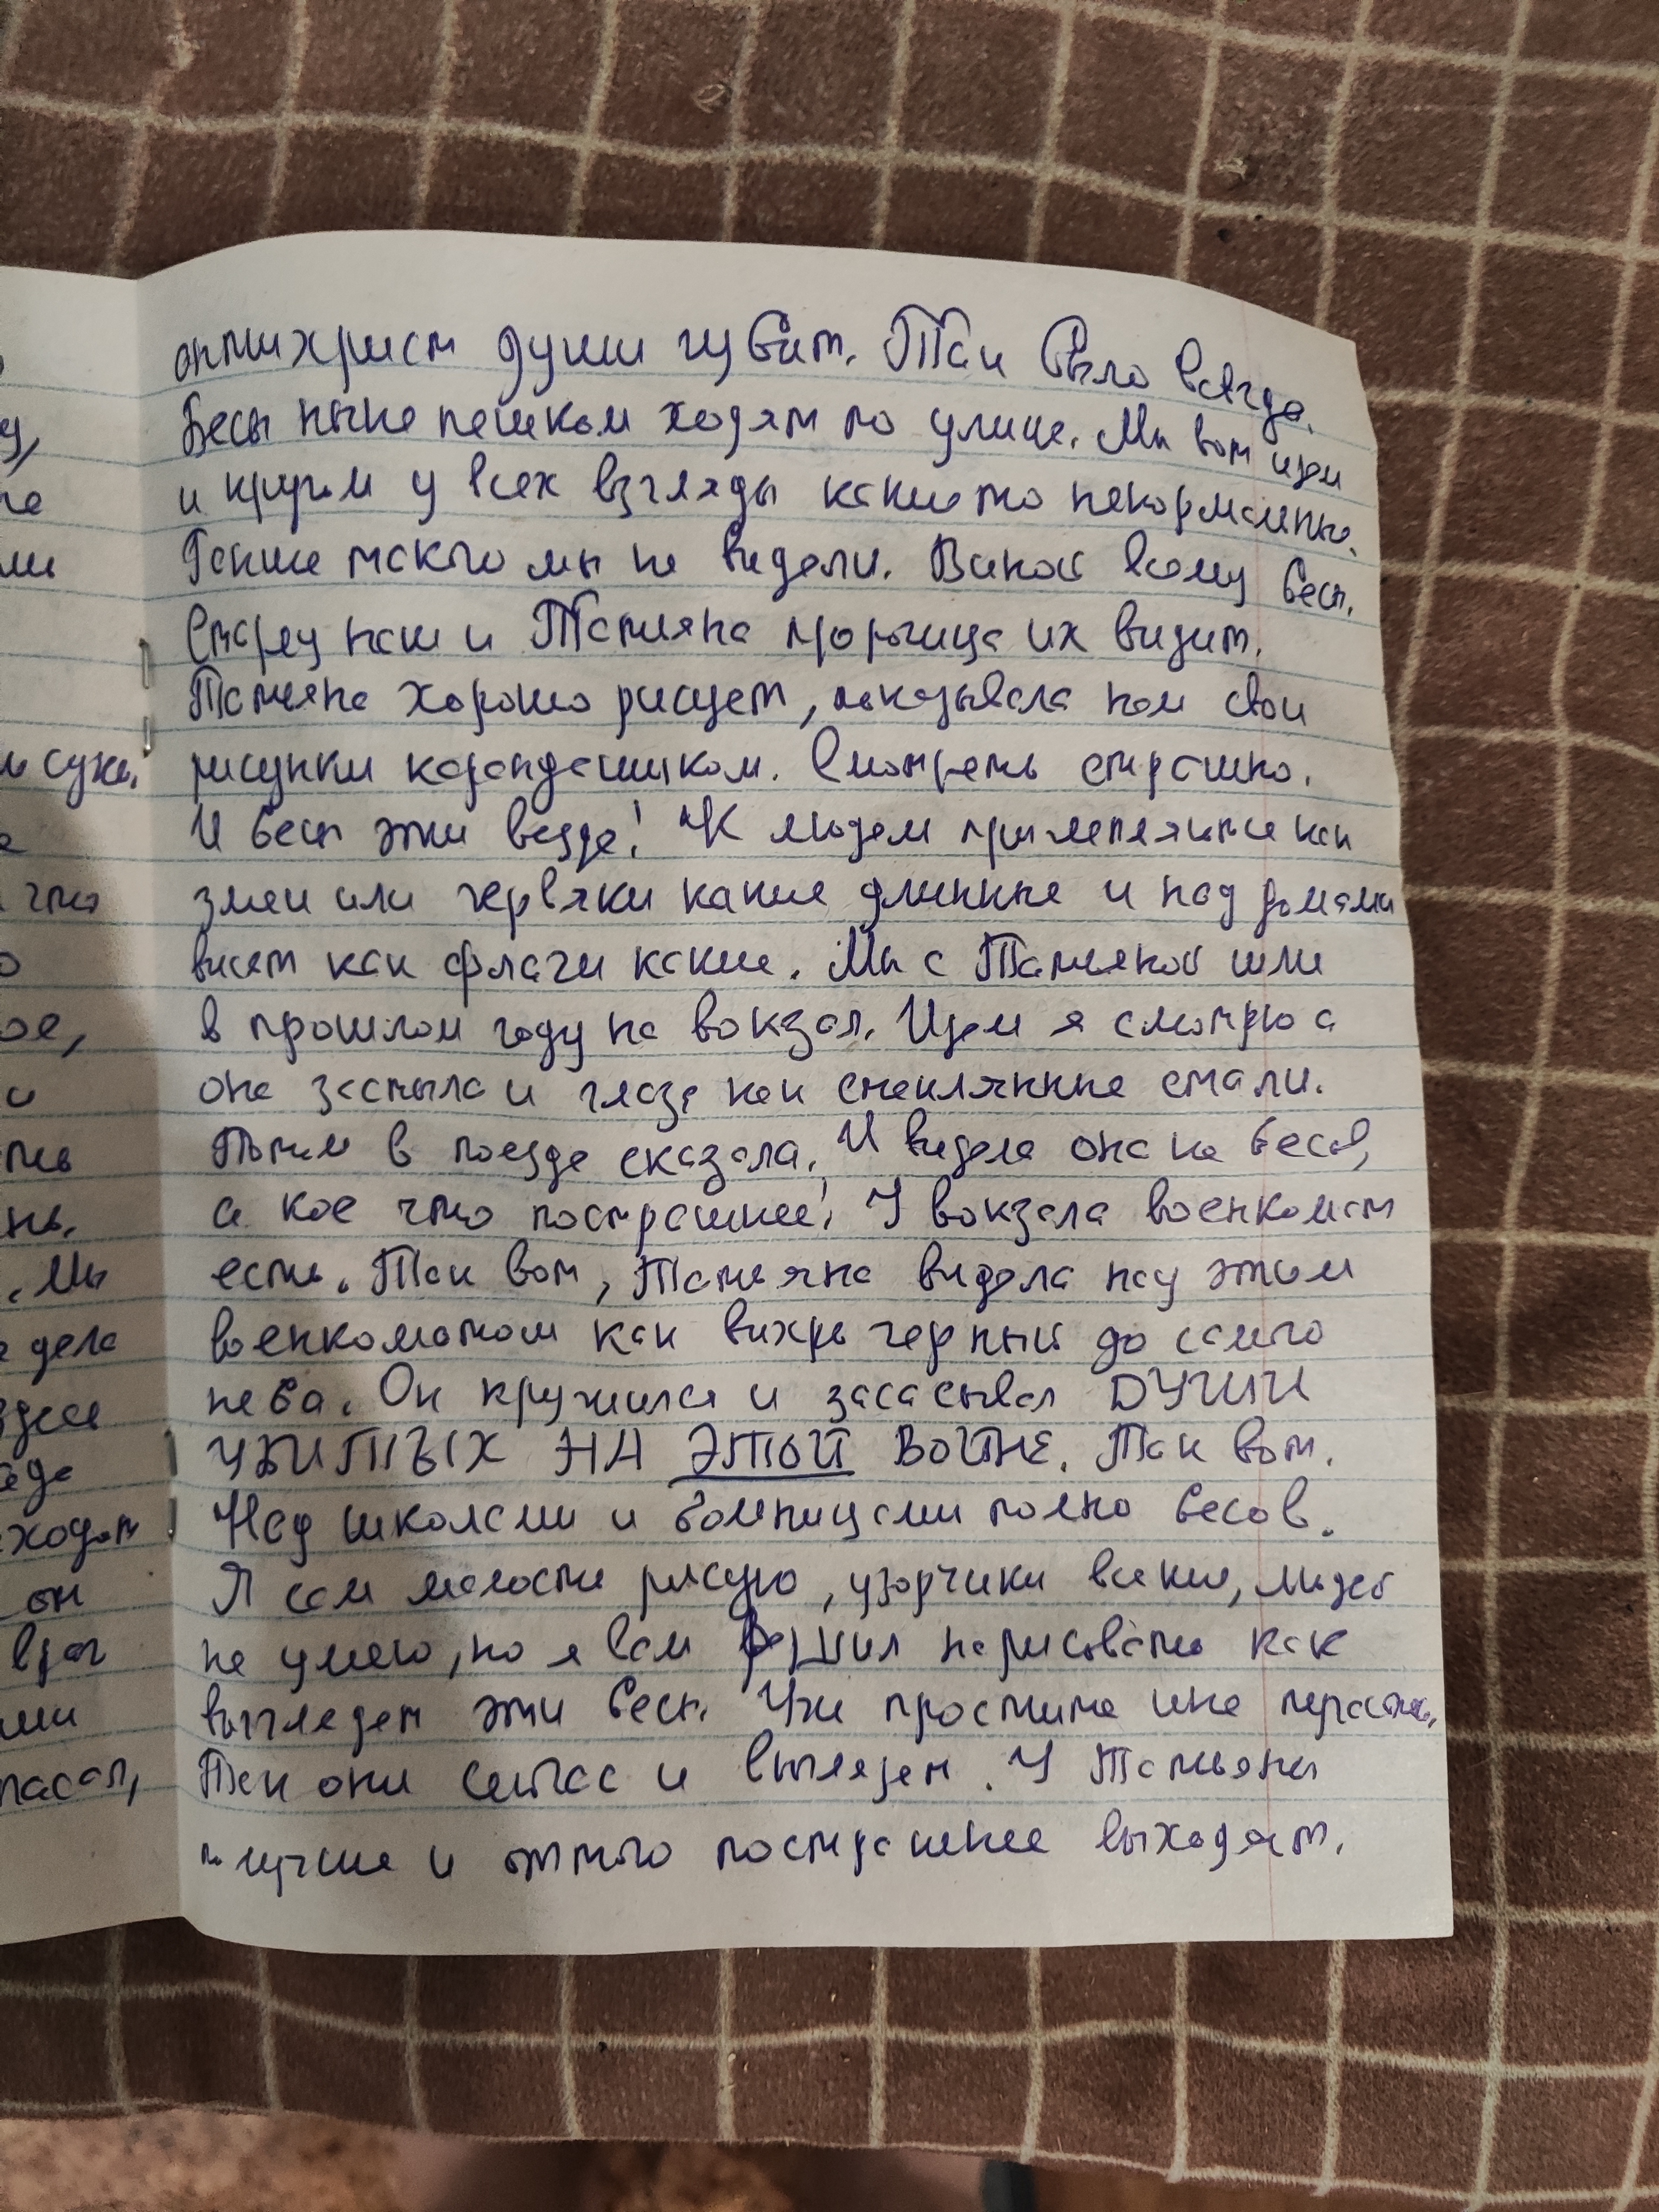 антихрист души губит. Так было всегда.
Бесы ныне пешком ходят по улице. Мы вот идем
и кругом у всех взгляды какието ненормальные.
Раньше такого мы не видели. Виной всему бесы.
Старец наш и Татьяна прорицица их видит.
Татьяна хорошо рисует, показывала нам свои
рисунки карандашиком. Смотреть страшно.
И бесы эти везде! К людям прилепляются как
змеи или червяки какие длинные и над домами
висят как флаги какие. Мы с Татьяной шли
в прошлом году на вокзал. Идем я смотрю а
она застыла и глаза как стеклянные стали.
Потом в поезде сказала. И видела она не бесов,
а кое что пострашнее! У вокзала военкомат
есть. Так вот, Татьяна видела над этим
военкоматом как вихрь черный до самого
неба. Он кружился и засасывал ДУШИ
УБИТЫХ НА ЭТОЙ ВОЙНЕ. Так вот.
Над школами и больницами полно бесов.
Я сам малость рисую, узорчики всякие, людей
не умею, но я вам решил нарисовать как
выглядят эти бесы. Уж простите мне
Так они сейчас и выглядят. У Татьяны
получше и оттого пострашнее выходят.
у,
ли
и сухи.
что
о
ое,
и
ть
нь.
. Мы
дела
здесь
ходит
он
врач
ми
пасал,